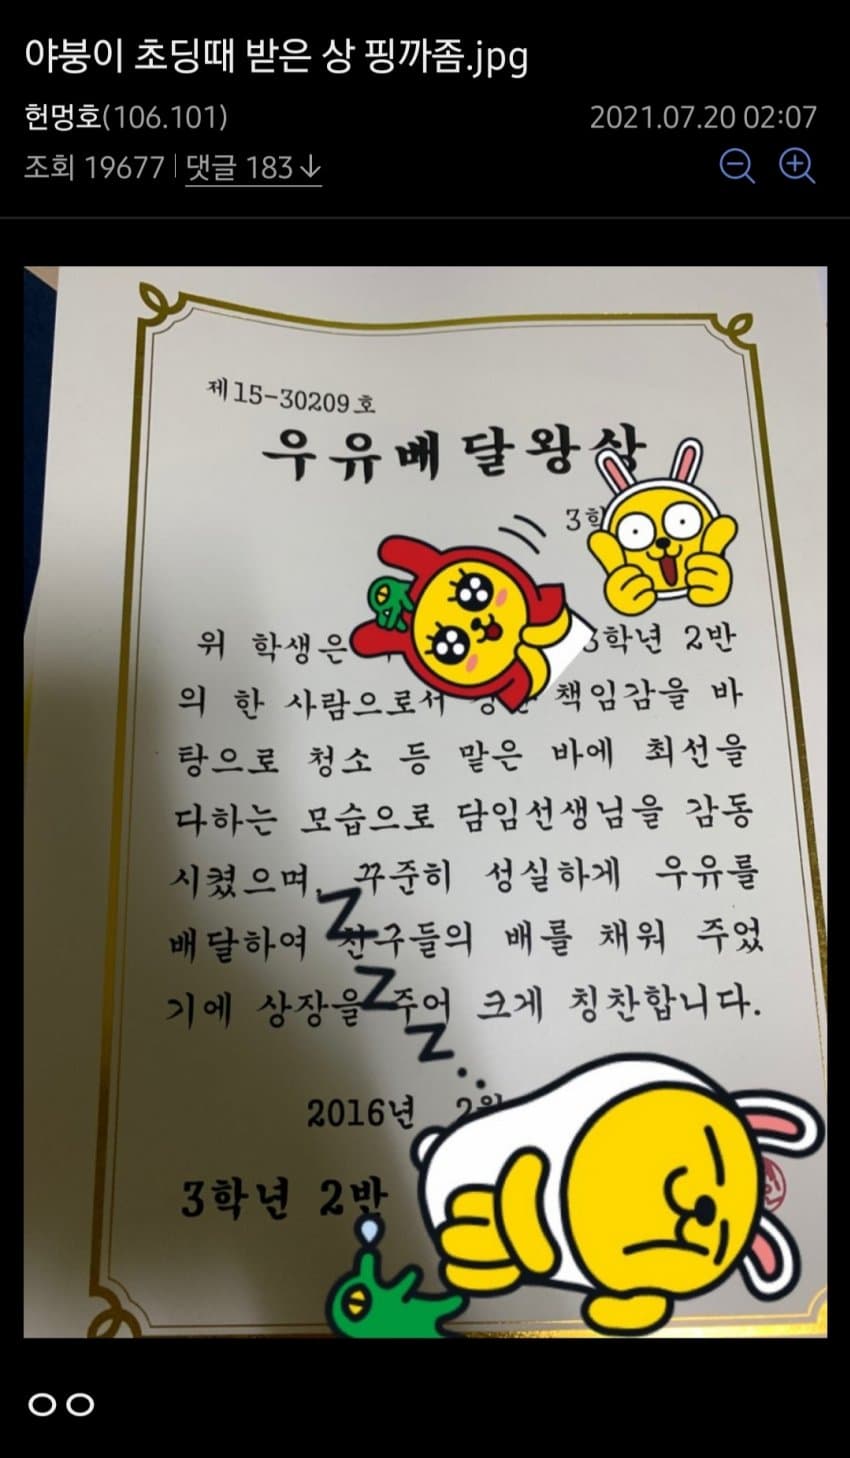 야붕이 초딩때 받은 상 핑까좀.jpg
헌멍호(106.101)
2021.07.20 02:07
조회 19677 | 댓글 183↓
제15-30209호
우유배달왕상
3학
위 학생은 3학년 2반
의 한 사람으로서 책임감을 바
탕으로 청소 등 맡은 바에 최선을
다하는 모습으로 담임선생님을 감동
시켰으며, 꾸준히 성실하게 우유를
배달하여 친구들의 배를 채워 주었
기에 상장을 주어 크게 칭찬합니다.
2016년 2월
3학년 2반
Z
Z
Z..
ㅇㅇ